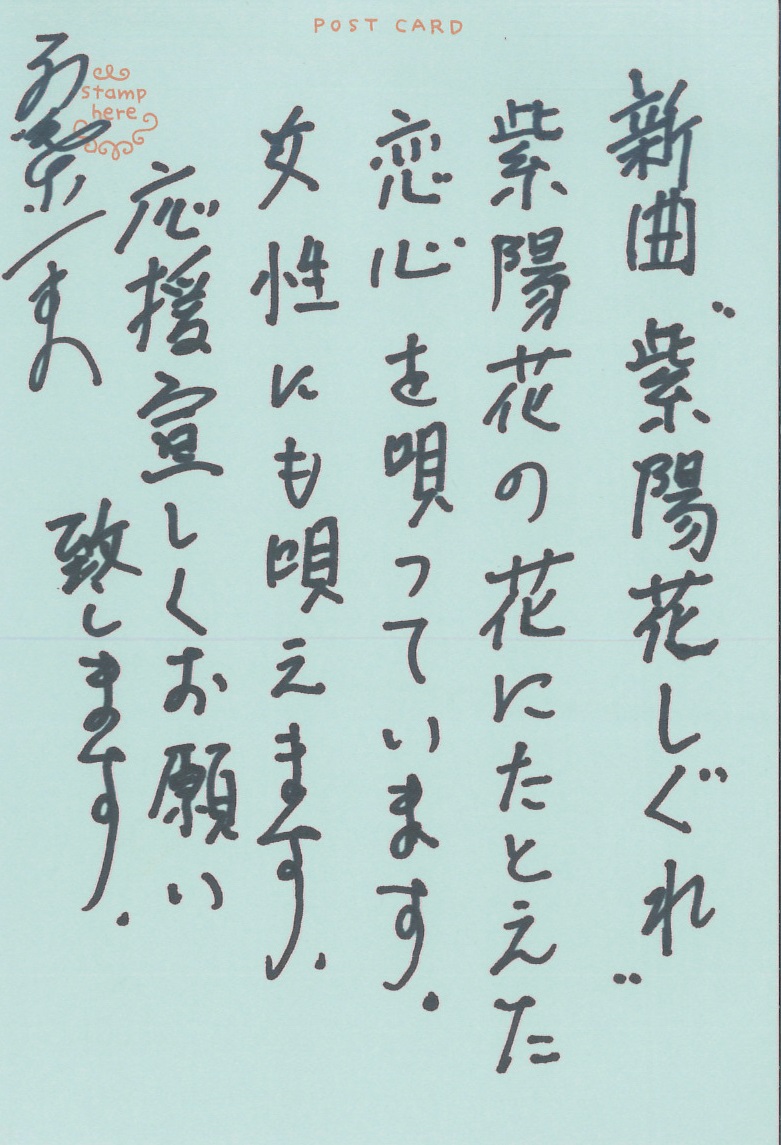 POST CARD
stamp
here
新曲〝紫陽花しぐれ〟
紫陽花の花にたとえた
恋心を唄っています.
女性にも唄えます.
応援宣しくお願い
致します.